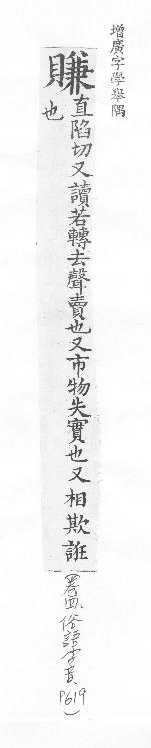 增廣字學舉隅
賺直陷切又讀若轉去聲賣也又市物失實也又相欺誑
也
(卷四.俗語字音 P619)